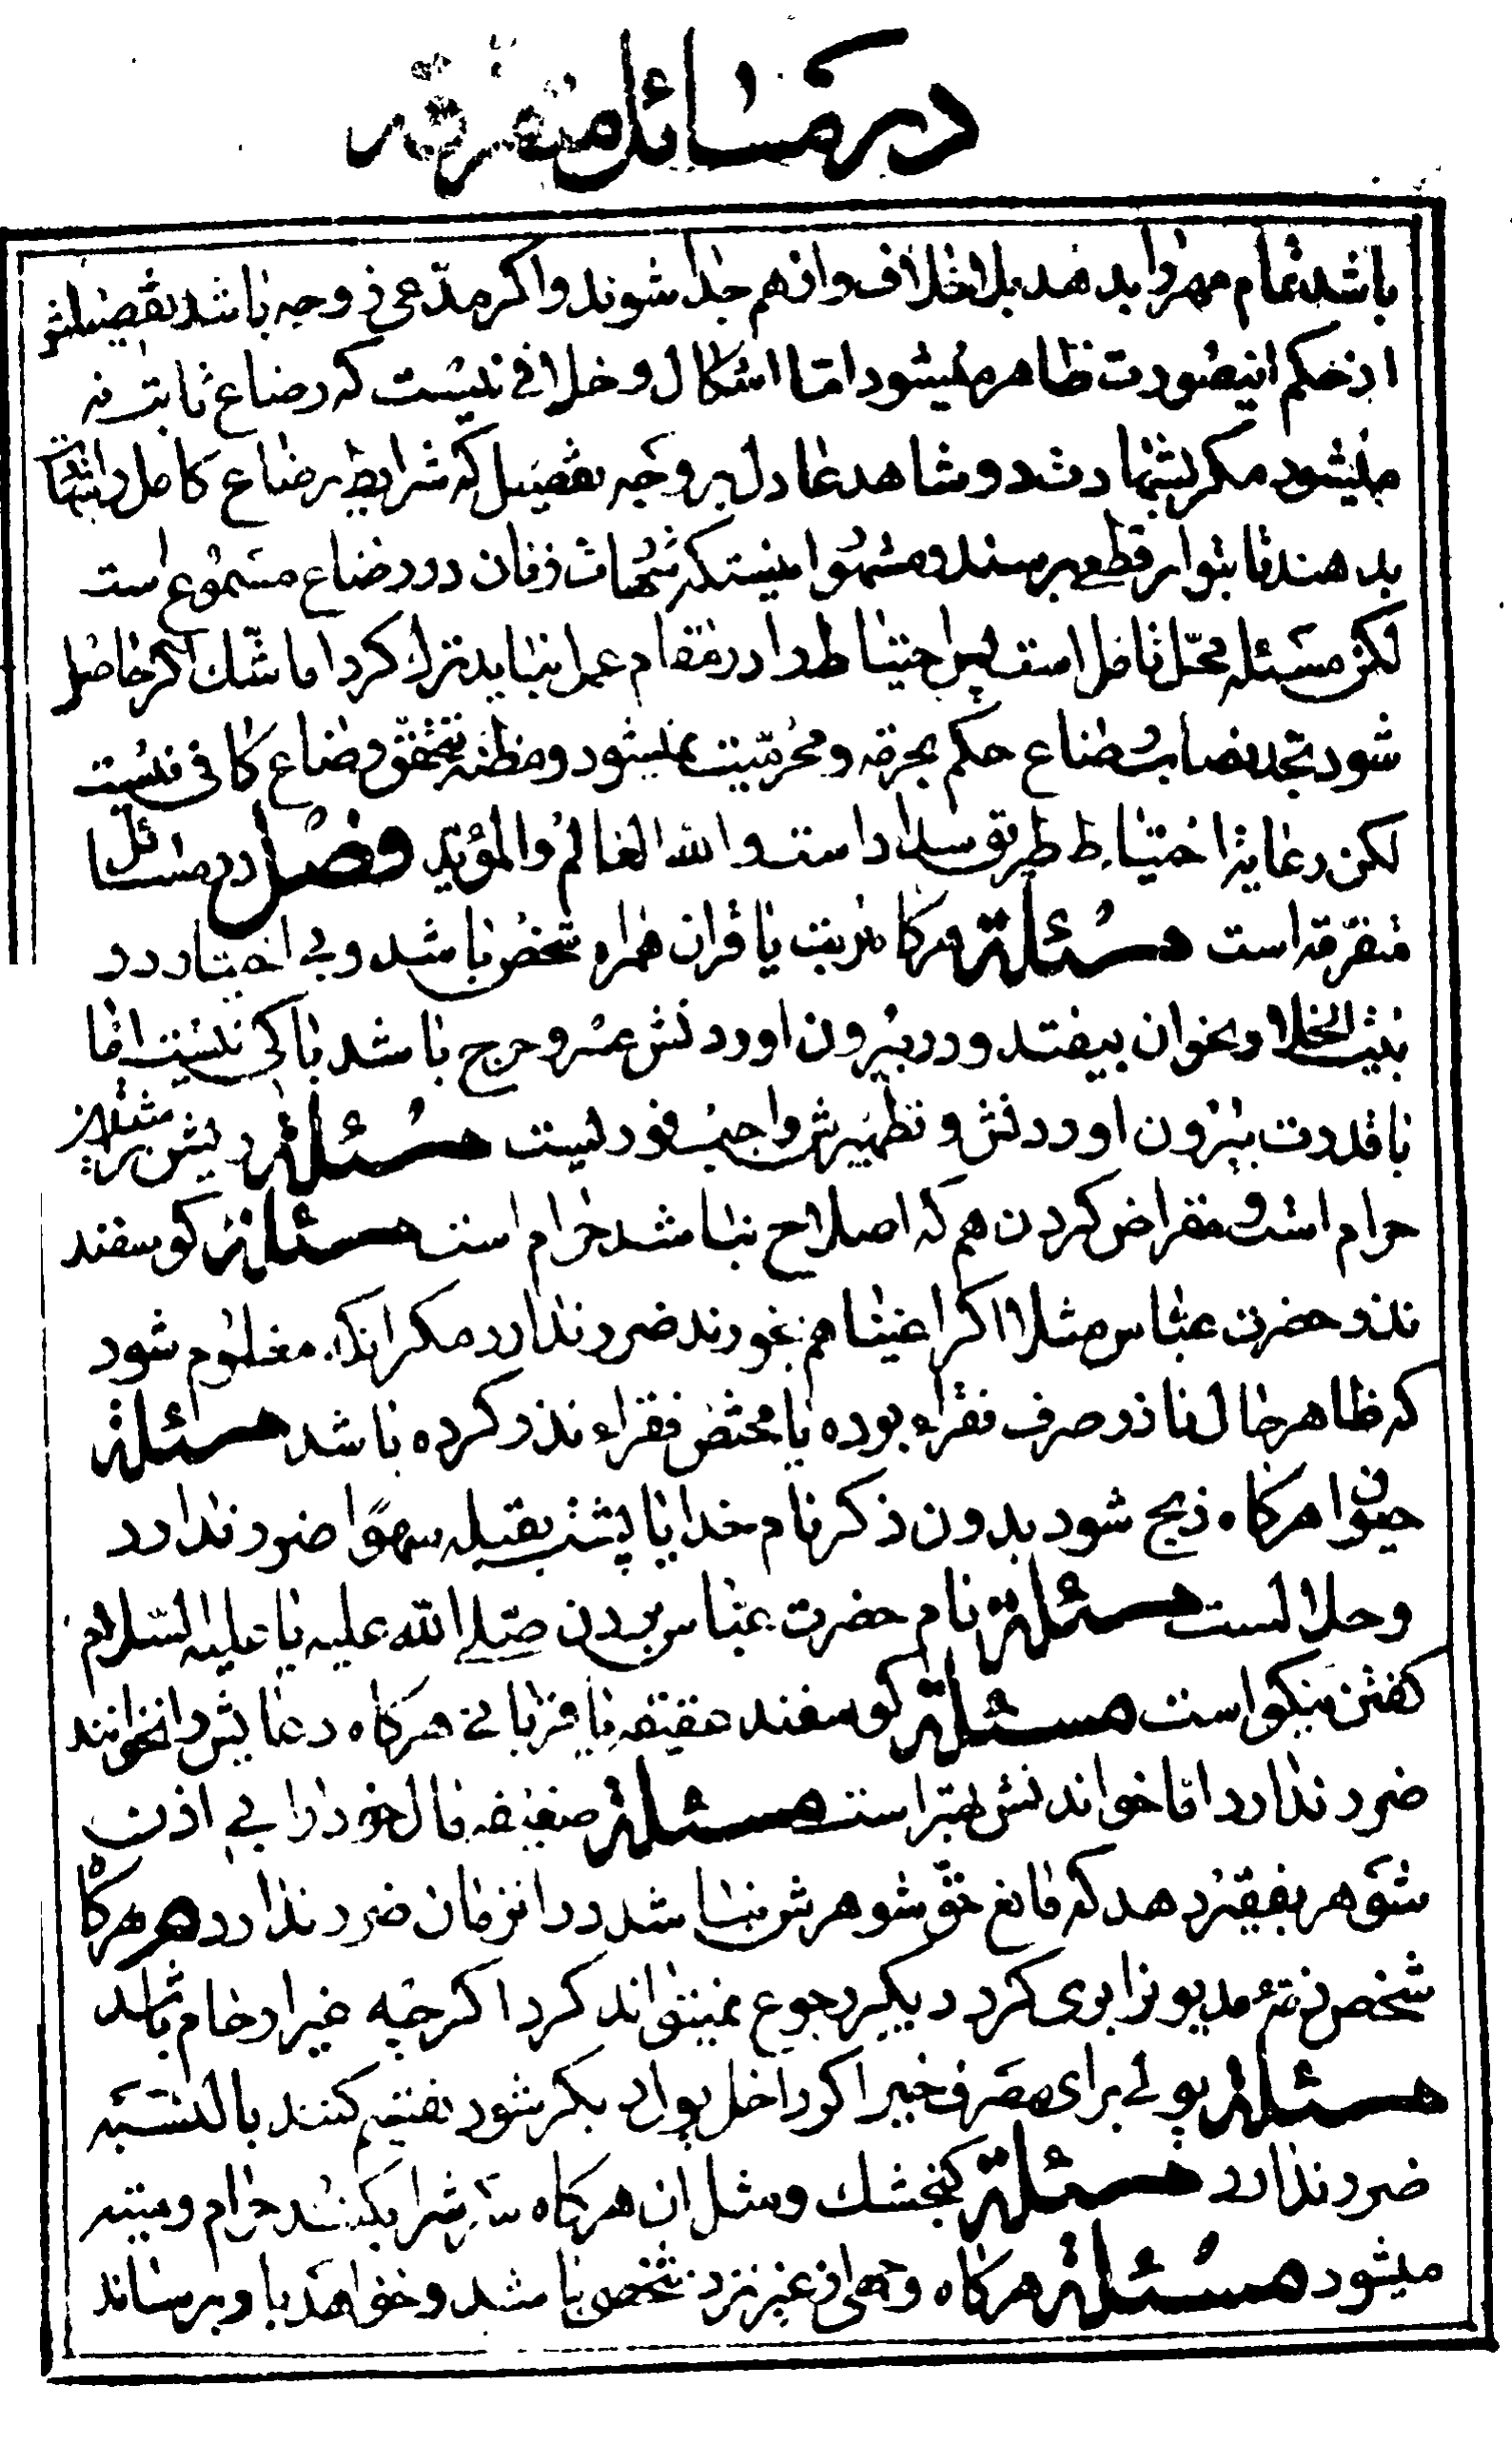 در مسائل متفرقه
باشد تمام مهر را بدهد بلا خلاف و از هم جدا شوند و اکر مدّعی زوجه باشد تفصیلش
از حکم اینصورت ظاهر میشود امّا اشکال و خلافی نیست که رضاع ثابت نه
میشود مکر بشهادت دو شاهد عادل بر وجه تفصیل که شرایط رضاع کامل را شهادت
بدهند تا بتواتر قطعی برسند و مشهور اینستکه شهادت زنان در رضاع مسموع است
لکن مسئله محّل تامل است پس احتیاط را در مقام عمل نباید ترک کرد اما شک اکر حاصل
شود بحد نصاب رضاع حکم بحرمة و محرمیّت نمیشود و مظنه بتحقق رضاع کافی نیست
لکن رعایة احتیاط طریق سداد است والله العالم والمؤید فصل در مسائل
متفرّقه است مسئلة هرکاه تربت یا قران همراه شخص باشد و بی اختیار در
بیت الخلا و نحوان بیفتد و در بیرون اوردنش عسر و حرج باشد باکی نیست امّا
با قدرت بیرون اوردنش و تطهیرش واجب فوریست مسئلة ریش تراشیدن
حرام است و مقراض کردن هم که اصلاح نباشد حرام است مسئلة کوسفند
نذر حضرت عباس مثلا اکر اغنیا هم بخورند ضرر ندارد مکر انکه معلوم شود
که ظاهر حال ناذر صرف فقراء بوده یا مختص فقراء نذر کرده باشد مسئلة
حیوان هرکاه ذبح شود بدون ذکر نام خدا یا پشت بقبله سهوًا ضرر ندارد
و حلالست مسئلة نام حضرت عباس بردن صلی الله علیه یا علیه السّلام
کفتن نیکو است مسئلة کوسفند عقیقه یا قربانی هرکاه دعایش را نخوانند
ضرر ندارد امّا خواندنش بهتر است مسئلة ضعیفه مال خود را بی اذن
شوهر بفقیر دهد که مانع حقّ شوهرش نباشد در انزمان ضرر ندارد هر هرکاه
شخص ذمّهٔ مدیونرا بری کرد دیکر رجوع نمیتواند کرد اکر چه غیر ارحام باشد
مسئلة پولی برای مصرف خیر اکر داخل پول دیکر شود تقسیم کنند بالنسبه
ضرر ندارد مسئلة کنجشک و مثل ان هرکاه سرشرا بکنند حرام و میته
میشود مسئلة هرکاه وجهی از غیر نزد شخص باشد و خواهد باو برساند